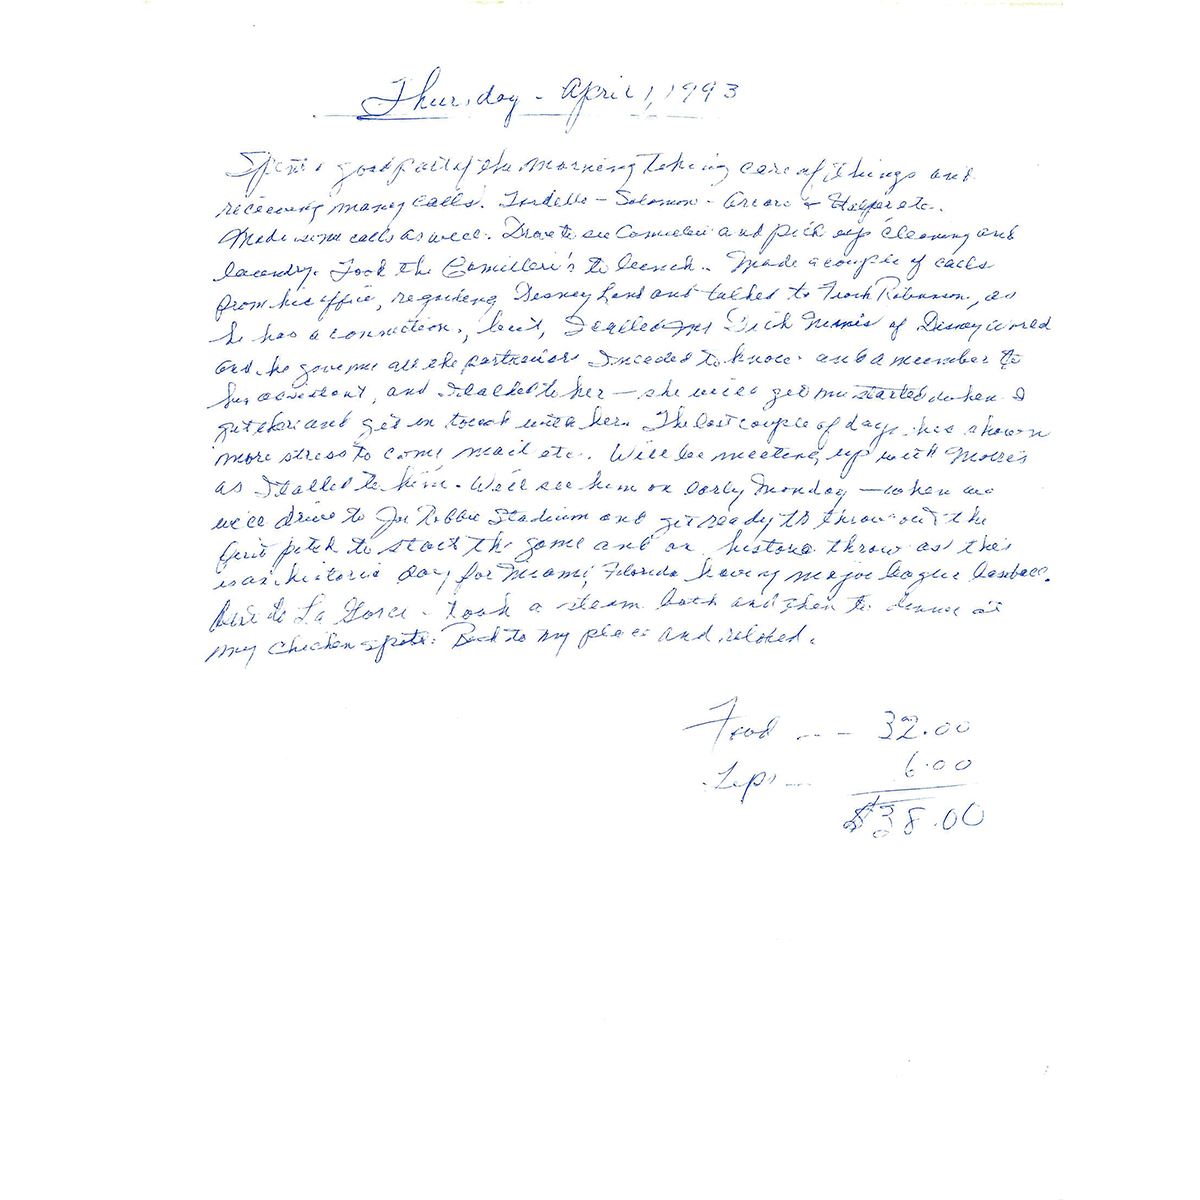 Thursday - April 1, 1993
Spent a good part of the morning taking care of things and
receiving many calls. - Solomon - & etc.
Made some calls as well. Drove to see Camilleri and pick up cleaning and
laundry. Took the Camilleri's to lunch. Made a couple of calls
from his office, regarding Disney Land and talked to Frank Robinson, as
he has a connection, but, I called Dick Nunis of Disney World
and he gave me all the particulars I needed to know and a number to
his assistant, and I talked to her - she will get me started when I
get there and get in touch with her. The last couple of days has shown
more stress to come mail etc. Will be meeting up with
as I talked to him. We'll see him on early Monday - when we
we'll drive to Joe Robbie Stadium and get ready to throw out the
first pitch to start the game and an historic throw as this
is an historic day for Miami, Florida having major league baseball.
to La Gorce - took a steam bath and then to dinner at
my chicken spots. Back to my place and relaxed.
Food --- 32.00
Tips -- 6.00
$38.00